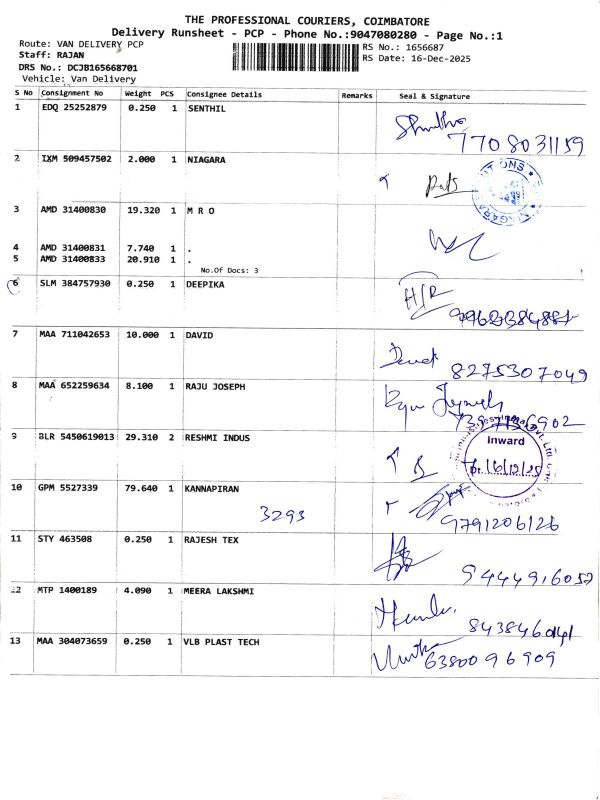 THE PROFESSIONAL COURIERS, COIMBATORE
Delivery Runsheet - PCP - Phone No.:9047080280 - Page No.:1
Route: VAN DELIVERY PCP
RS No.: 1656687
Staff: RAJAN
RS Date: 16-Dec-2025
DRS No.: DCJB165668701
Vehicle: Van Delivery
S No Consignment No Weight PCS Consignee Details Remarks Seal & Signature
1 EDQ 25252879 0.250 1 SENTHIL
7708031159
2 IXM 509457502 2.000 1 NIAGARA
3 AMD 31400830 19.320 1 M R O
4 AMD 31400831 7.740 1 .
5 AMD 31400833 20.910 1 .
No.Of Docs: 3
6 SLM 384757930 0.250 1 DEEPIKA
H/R
7 MAA 711042653 10.000 1 DAVID
8275307049
8 MAA 652259634 8.100 1 RAJU JOSEPH
9 BLR 5450619013 29.310 2 RESHMI INDUS
Inward
16/12/25
10 GPM 5527339 79.640 1 KANNAPIRAN
3293
9791206126
11 STY 463508 0.250 1 RAJESH TEX
9444916052
12 MTP 1400189 4.090 1 MEERA LAKSHMI
8438460141
13 MAA 304073659 0.250 1 VLB PLAST TECH
6380096909